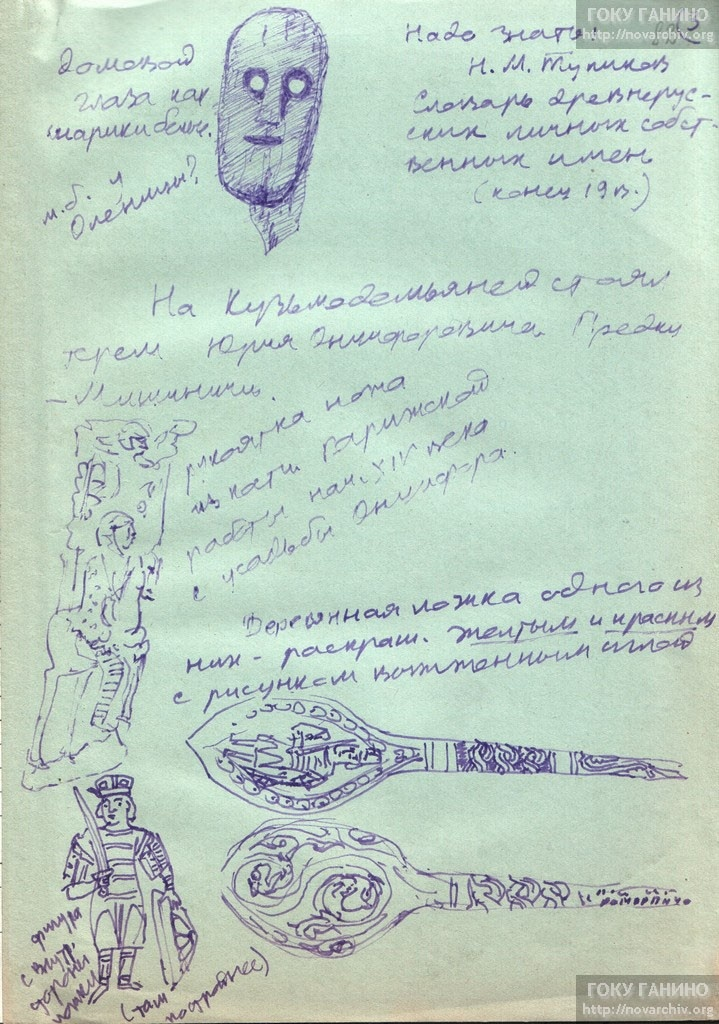 ГОКУ ГАНИНО
http://novarchiv.org
домовой
глаза как
шарики белые.
м.б. и
Оленины?
Надо знать
Н. М. Тупиков
Словарь древнерус-
ских личных собст-
венных имен
(конец 19 в.)
На Кузьмодемьяней стоял
терем Юрия Онцифоровича. Предки
- Мишиничи.
рукоятка ножа
из кости Парижской
работы нач. XIV века
с усадьбы Онцифора.
Деревянная ложка одного из
них - раскраш. желтым и красным
с рисунком выжженным иглой
фигура
с внутр.
стороны
ложки
(там
подробнее)
ГОКУ ГАНИНО
http://novarchiv.org